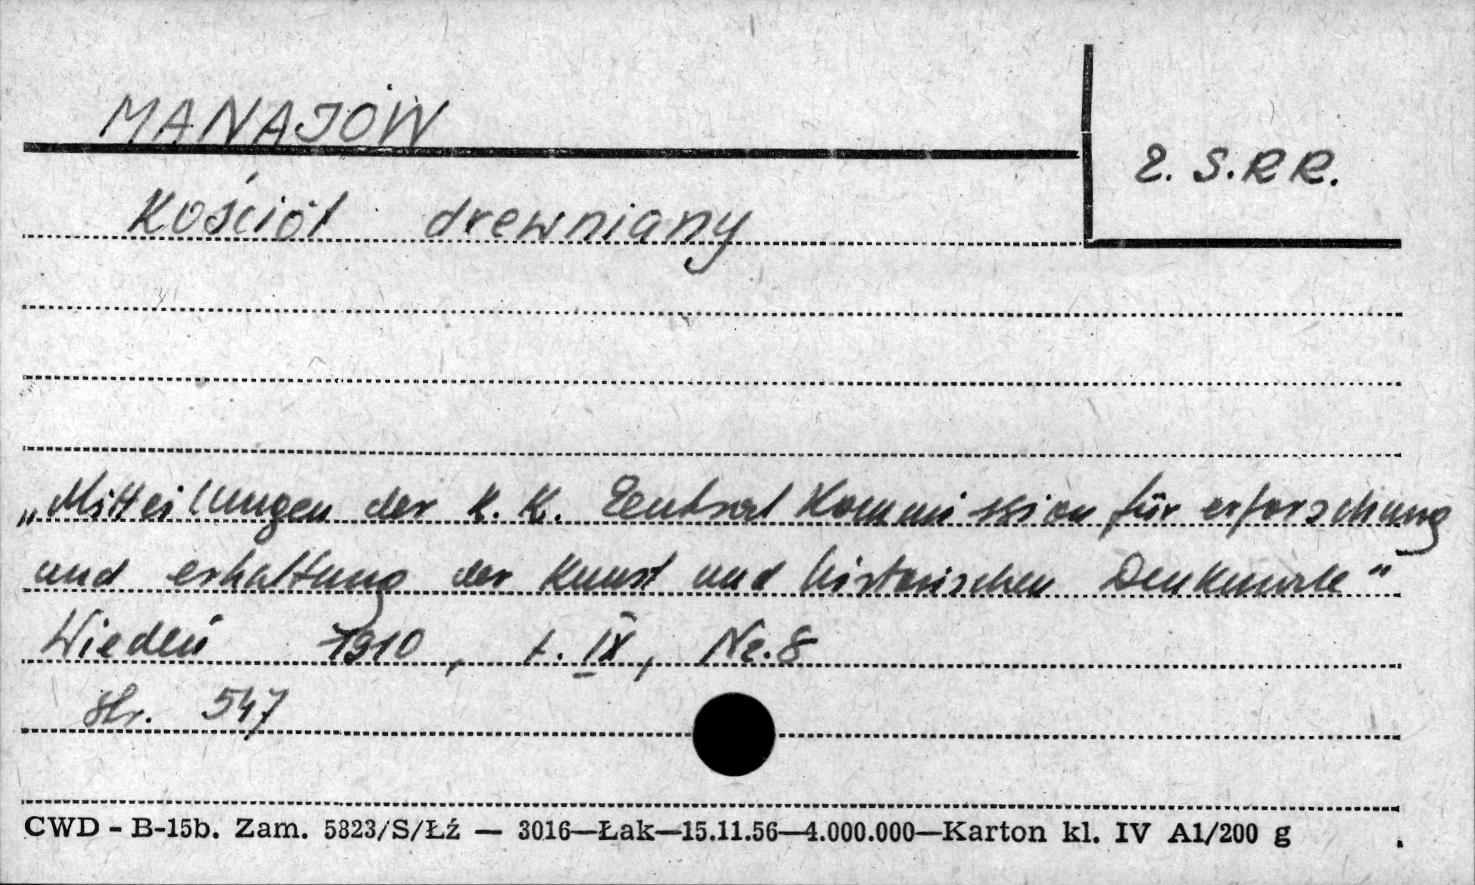 MANAJÓW
Z. S.R R.
Kościół drewniany
„Mitteilungen der K. K. Zentral Kommission für erforschung
und erhaltung der Kunst und historischen Denkmale"
Wiedeń 1910, t. IX, Nr. 8
str. 547
CWD - B-15b. Zam. 5823/S/Łź — 3016—Łak—15.11.56—4.000.000—Karton kl. IV A1/200 g